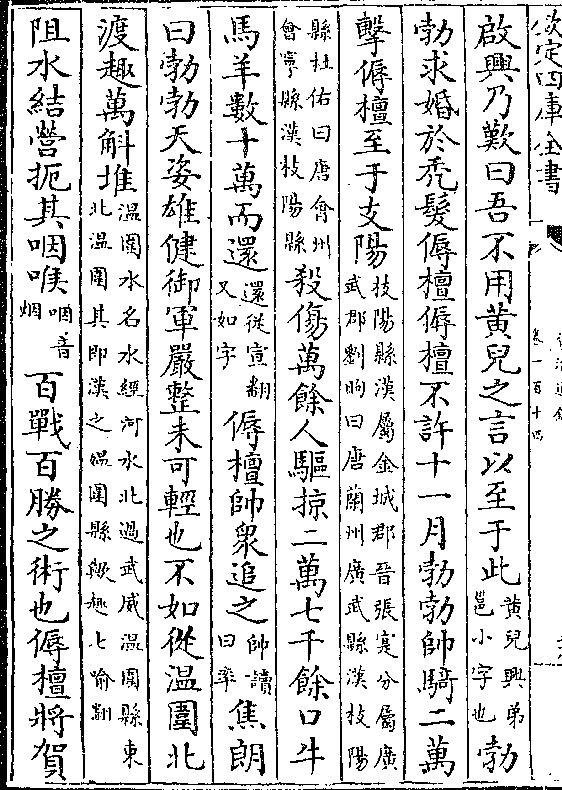 欽定四庫全書
卷一百十四
啟興乃歎曰吾不用黄兒之言以至于此黄兒興弟邕小字也勃
勃求婚於禿髮傉檀傉檀不許十一月勃勃帥騎二萬
擊傉檀至于支陽枝陽縣漢屬金城郡晉張寔分屬廣武郡劉昫曰唐蘭州廣武縣漢枝陽
縣杜佑曰唐會州會寧縣漢枝陽縣殺傷萬餘人驅掠二萬七千餘口牛
馬羊數十萬而還還從宣翻又如字傉檀帥衆追之帥讀曰率焦朗
曰勃勃天姿雄健御軍嚴整未可輕也不如從温圍北
渡趣萬斛堆温圍水名水經河水北過武威温圍縣東北温圍其即漢之媪圍縣歟趣七喻翻
阻水結營扼其咽喉咽音烟百戰百勝之術也傉檀將賀